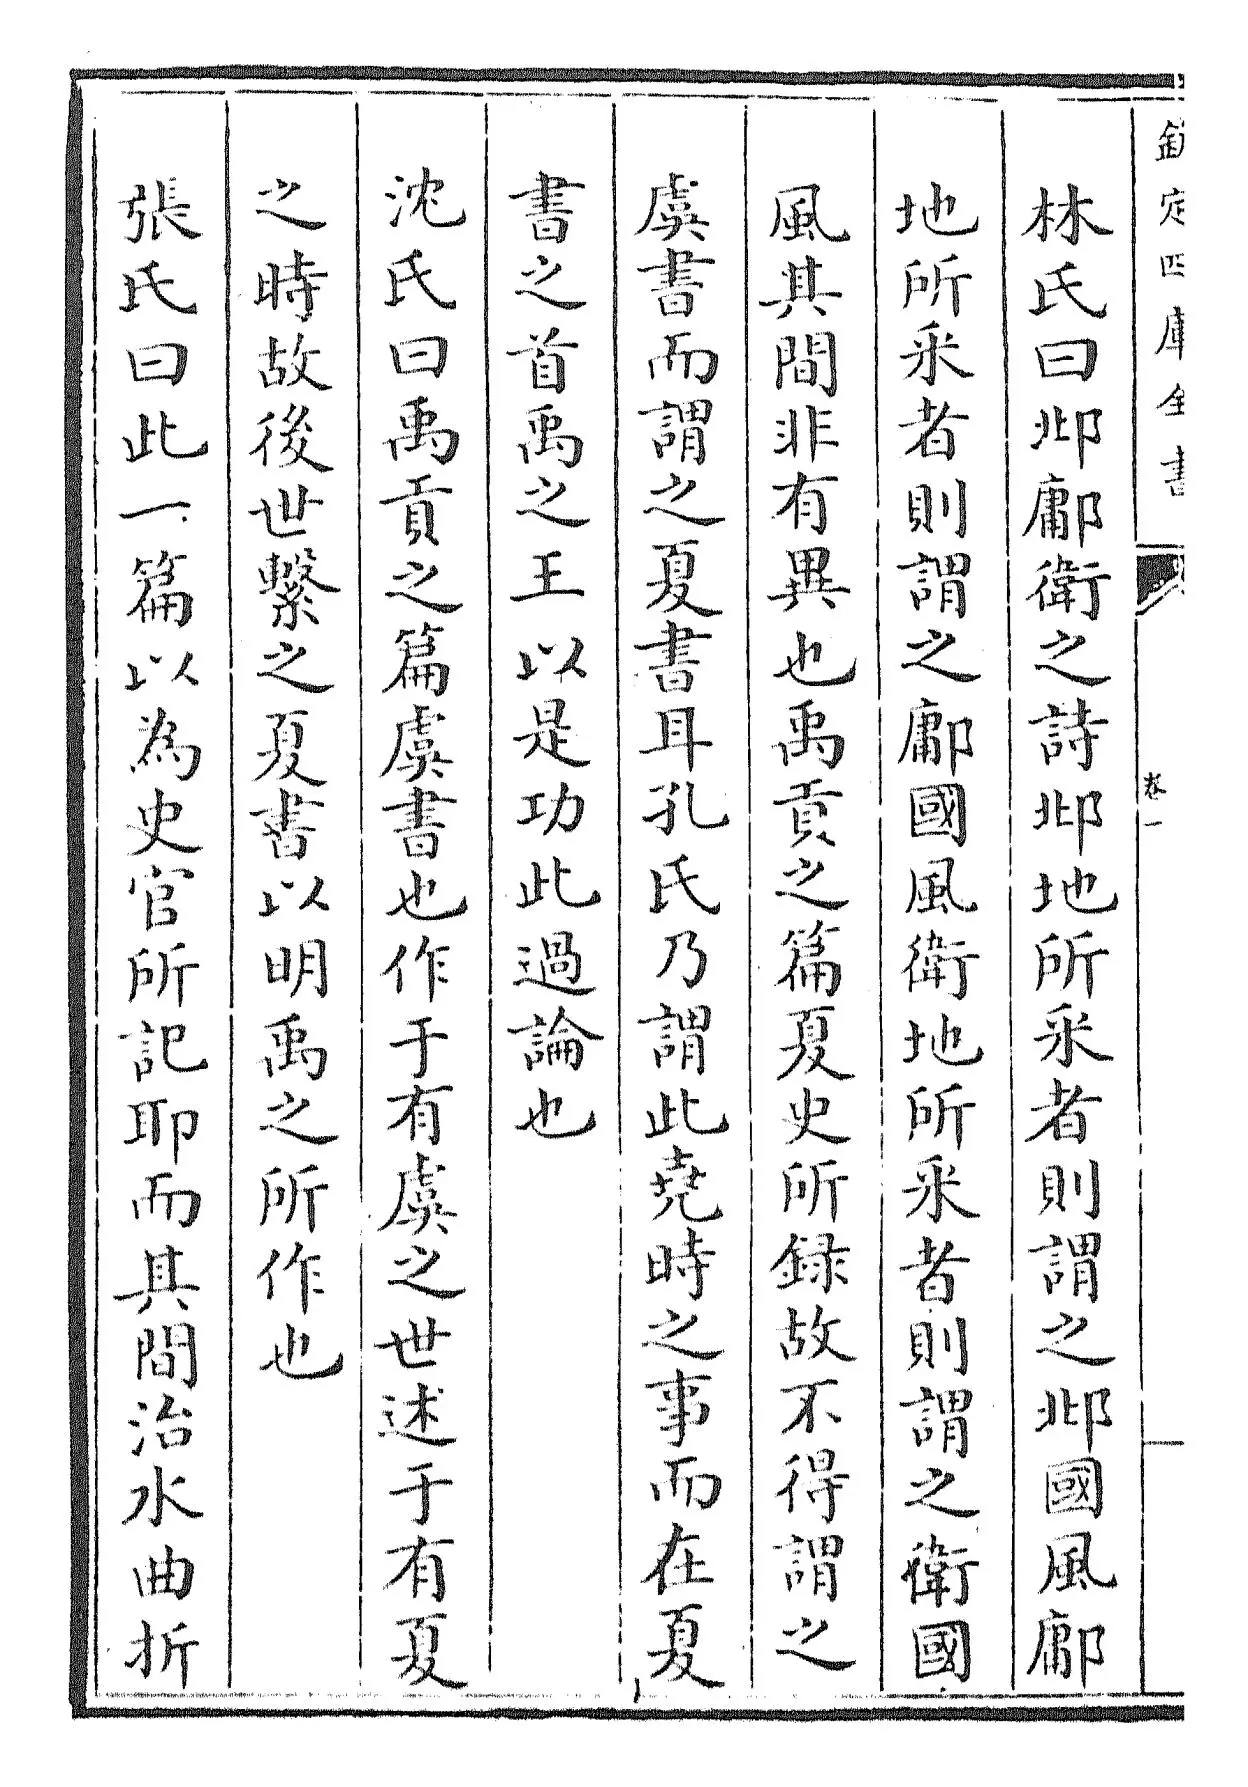 欽定四庫全書
卷一
林氏曰邶鄘衛之詩邶地所采者則謂之邶國風鄘
地所采者則謂之鄘國風衛地所采者則謂之衛國
風其間非有異也禹貢之篇夏史所録故不得謂之
虞書而謂之夏書耳孔氏乃謂此堯時之事而在夏
書之首禹之王以是功此過論也
沈氏曰禹貢之篇虞書也作于有虞之世述于有夏
之時故後世繫之夏書以明禹之所作也
張氏曰此一篇以為史官所記耶而其間治水曲折